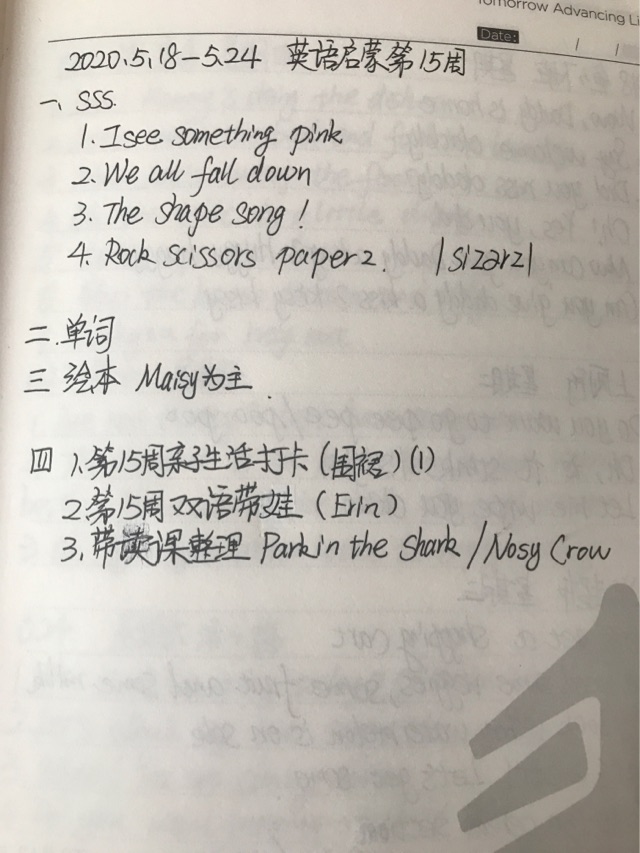 Tomorrow Advancing Li
Date: / /
2020.5.18-5.24 英语启蒙第15周
一、SSS.
1. I see something pink
2. We all fall down
3. The shape song!
4. Rock scissors paper 2. |sizərz|
二.单词
三 绘本 Maisy为主.
四 1.第15周亲子生活打卡(围裙)(1)
2.第15周双语带娃(Erin)
3.带读课整理 Park in the Shark / Nosy Crow